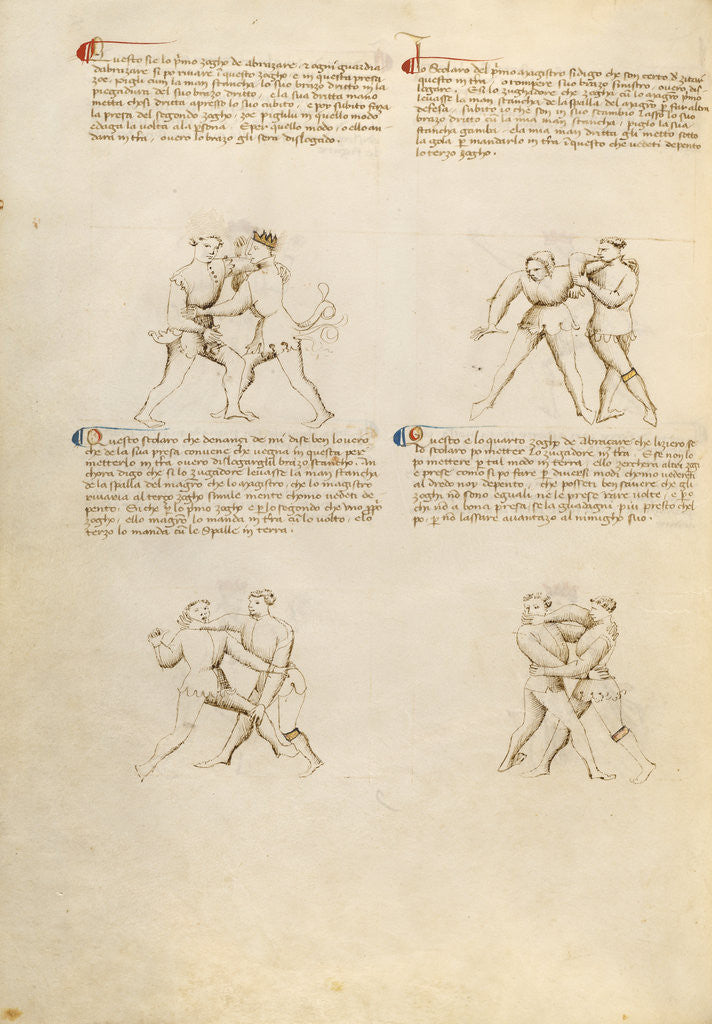 Questo sie lo p̃mo zogho de abrazare, e ogni guardia
d'abrazare si po rivare ĩ questo zogho e in questa presa
zoe, pigli cum la man stancha lo suo brazo dritto in la
piegadura del suo brazo dritto, e la sua dritta mano
metta chosi dritta apresso lo suo cubito, e poy subito faza
la presa del segondo zogho, zoe pigli lu in quello modo
e daga la volta a la p̱sona. E per quello modo, o ello an-
dara in t̃ra, overo lo brazo gli sera dislogado.
Lo Scolaro del p̃mo magistro si digo che son certo d̃ zitar
questo in t̃ra, o rompere suo brazo sinistro, overo dis-
logare. E si lo zughadore che zogha cũ lo magr̃o p̃mo
levasse la man stancha de la spalla del magr̃o p̱ fur altra
defesa, subito io che son in suo scambio lasso lo suo
brazo dritto cũ la mia man stancha, e piglo la sua
stancha gamba, e la mia man dritta gli metto sotto
la gola p̱ mandarlo in t̃ra ĩ questo che vedeti depento
lo terzo zogho.
Questo scolaro che denanci de mi dise ben lo vero
che de la sua presa convene che vegna in questa per
metterlo in t̃ra overo dislogargli 'l brazo stancho. An-
chora digo che si lo zugadore levasse la man stancha
de la spalla del magr̃o che lo magr̃o, che lo magistro
rivaria al terço zogho simile mente chomo vedeti de-
pento. Si che p̱ lo p̃mo zogho e p̱ lo segondo che uno p̱p̱o
zogho, ello magr̃o lo manda in t̃ra cũ lo volto, e lo
terzo lo manda cũ le Spalle in terra.
Questo e lo quarto zogho de Abraçare che liziero se
lo scolaro po metter lo zugadore in t̃ra. E se non lo
po mettere p̱ tal modo in terra, ello zerchera altri zogi
e prese como si po fare p̱ diversi modi chomo vedereti
al dredo noy depento, che posseti ben savere che gli
zoghi nõ sono eguali nè le prese rare volte, e p̱o
chi nõ a bona presa se la guadagni piu presto chel
po, p̱ nõ lassare avantazo al nimigho suo.